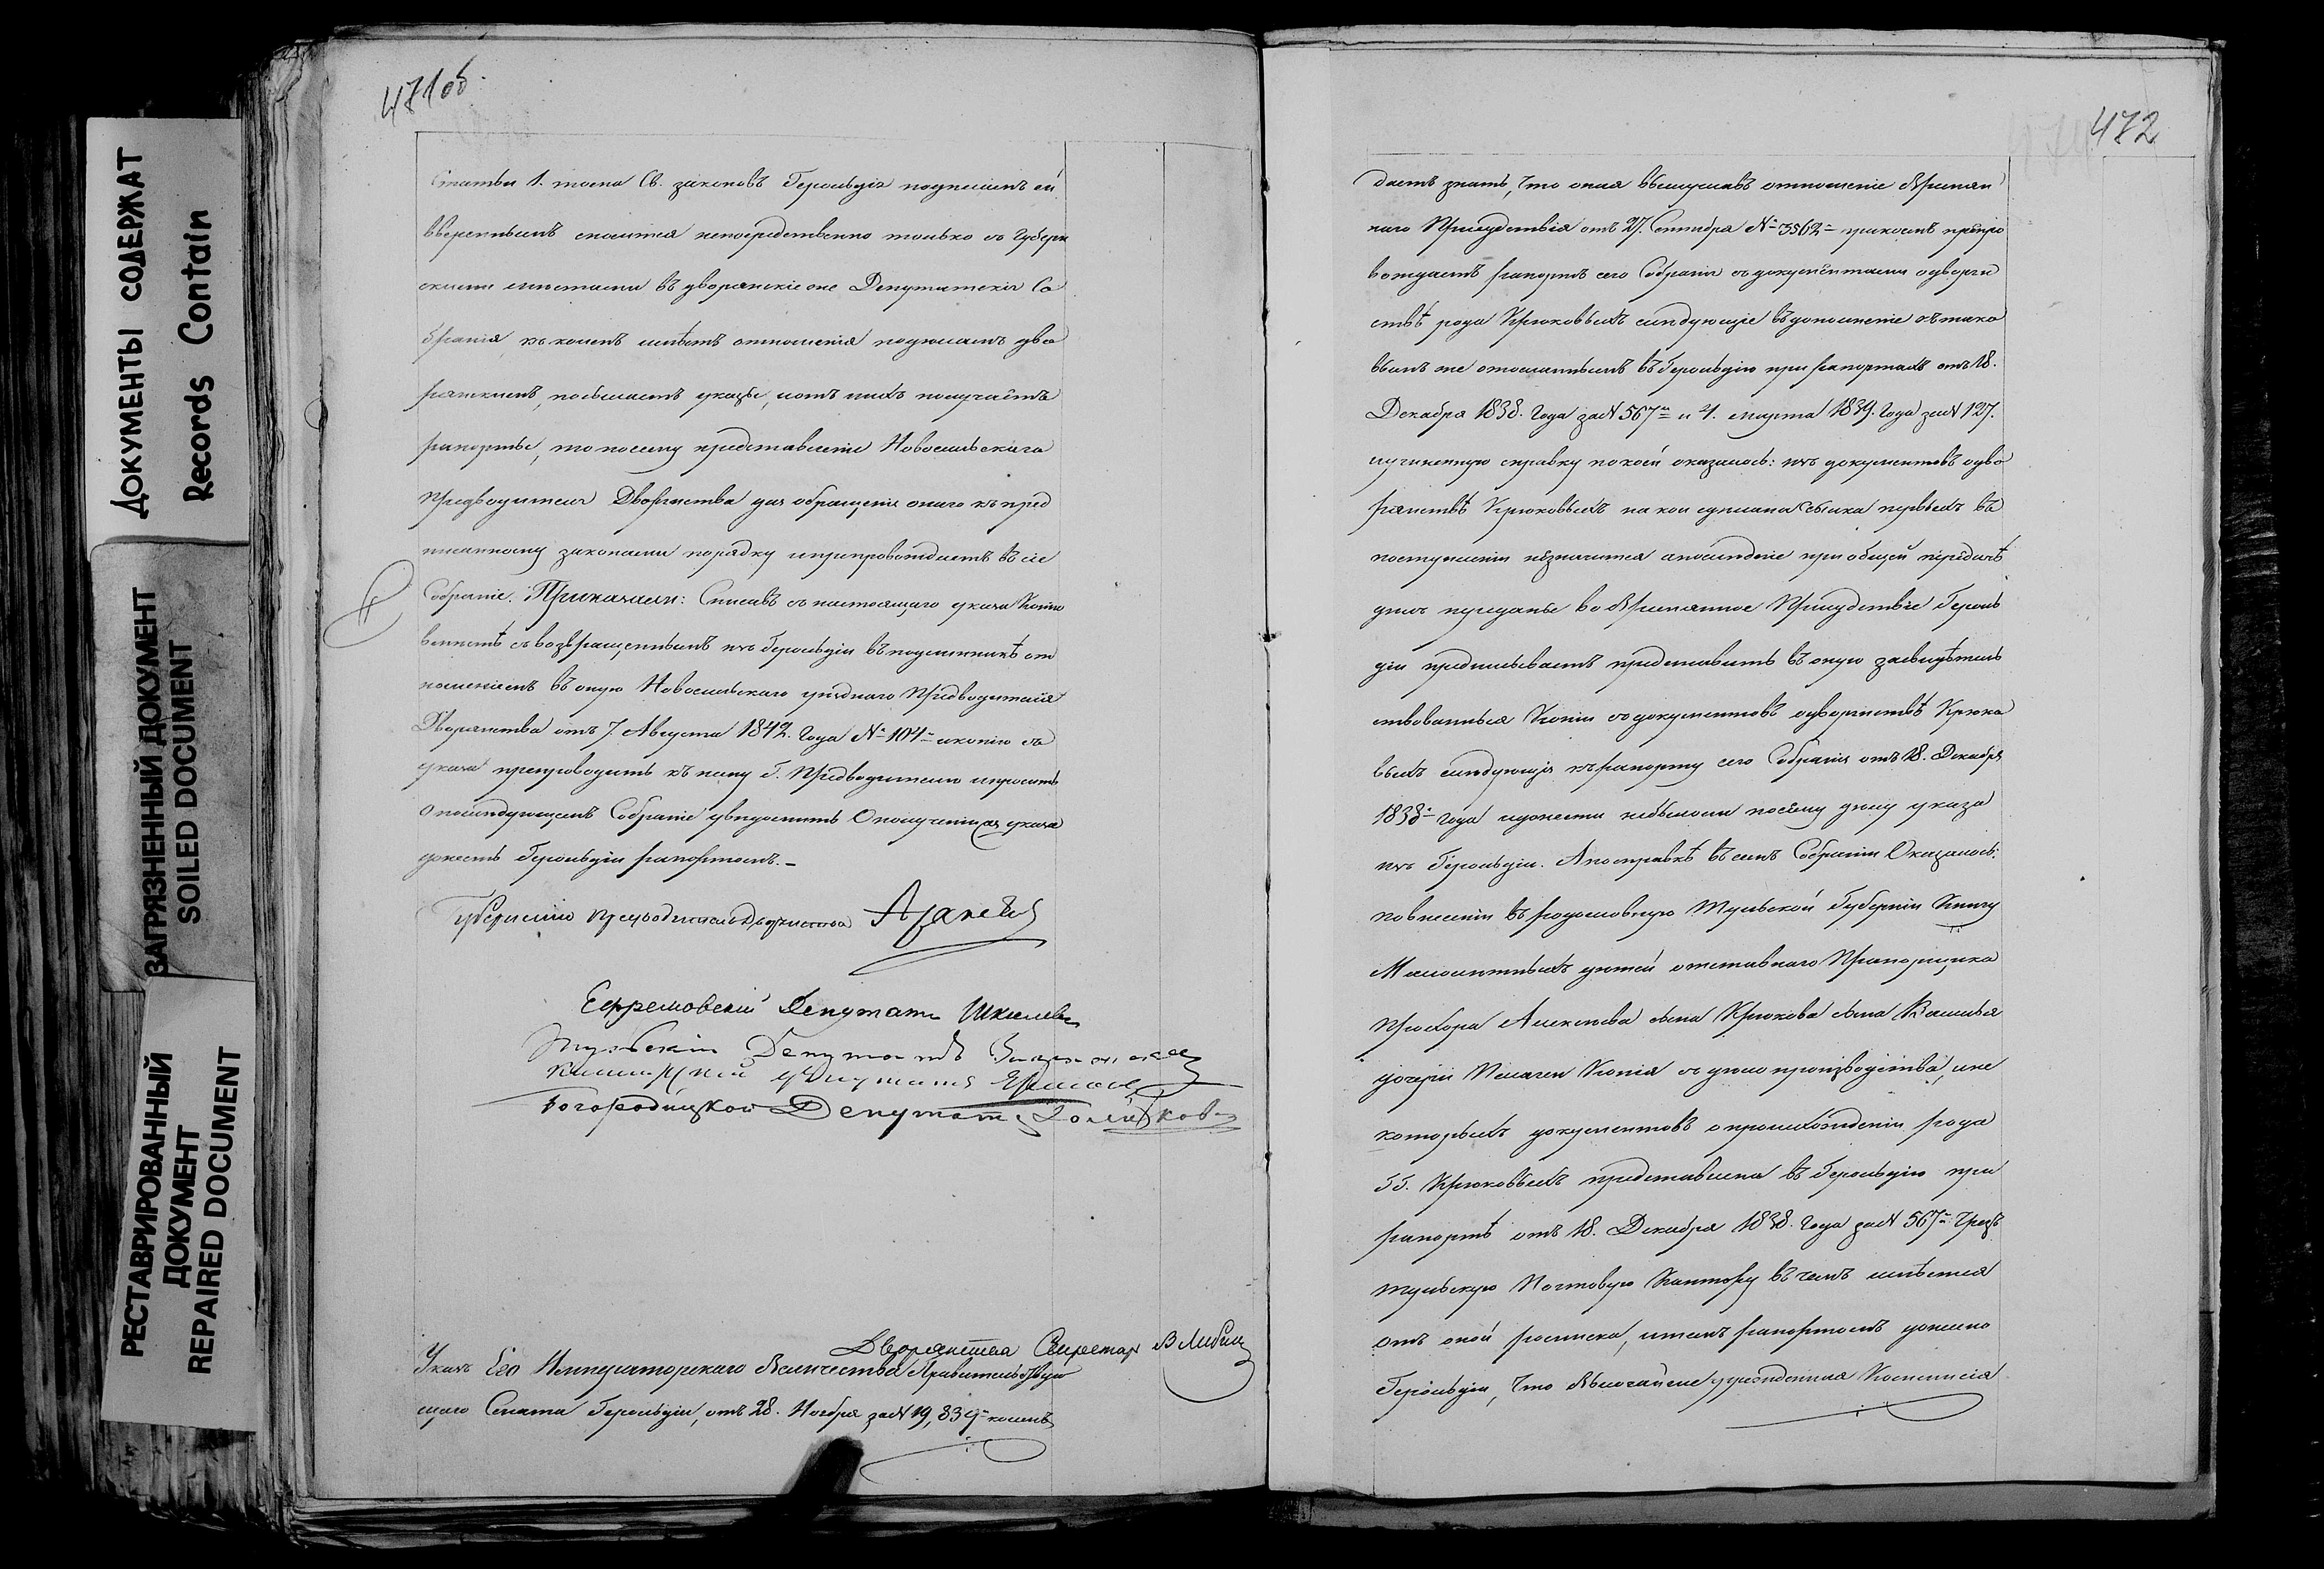 ДОКУМЕНТЫ СОДЕРЖАТ
Records Contain
ЗАГРЯЗНЕННЫЙ ДОКУМЕНТ
SOILED DOCUMENT
РЕСТАВРИРОВАННЫЙ
ДОКУМЕНТ
REPAIRED DOCUMENT
471об.
Статьи 1. тома Св. законовъ Герольдія по дѣламъ ей
ввереннымъ сносится непосредственно только съ Губерн
скими местами въ дворянскіе же Депутатскія Со
бранія, къ коимъ имѣетъ отношенія по дѣламъ дво
рянскимъ, посылаетъ указы, и отъ нихъ получаетъ
рапорты, то посему представленіе Новосильскаго
Предводителя Дворянства для обращенія онаго къ пред
писанному законами порядку и препровождаетъ въ сіе
Собраніе. Приказали: Списавъ съ настоящаго указа Копію
вмѣстѣ съ возвращеннымъ изъ Герольдіи въ подлинникѣ от
ношеніемъ въ оную Новосильскаго уѣзднаго Предводителя
Дворянства отъ 7. Августа 1842. года № 104 и копію съ
указа препроводить къ нему Г. Предводителю и просить
о послѣдующемъ Собраніе увѣдомить О полученіи же указа
донесть Герольдіи рапортомъ.
Губернскій Предводитель Дворянства
Ефремовскій Депутатъ
Тульскій Депутатъ
Каширскій Депутатъ
Богородицкой Депутатъ
Дворянства Секретарь
Указъ Его Императорскаго Величества Правительствую
щаго Сената Герольдіи, отъ 28. Ноября за № 19,839 коимъ
472
даетъ знать, что оная выслушавъ отношеніе Временн
наго Присудствія отъ 27. Сентября № 3562 при коемъ препро
вождаетъ рапортъ сего Собранія съ документами о дворян
ствѣ рода Крюковыхъ слѣдующіе въ дополненіе къ тако
вымъ же отосланнымъ въ Герольдію при рапортахъ отъ 18.
Декабря 1838. Года за № 567 и 4. марта 1839. Года за № 127.
и учиненную справку по коей оказалось: изъ документовъ о дво
рянствѣ Крюковыхъ на кои сделана ссылка первыхъ въ
поступленіи незначится а последніе при общей передачѣ
дѣлъ преданы во Временное Присудствіе Героль
діи предписываетъ представить въ оную засвидѣтель
ствованныя Копіи съ документовъ о дворянствѣ Крюко
выхъ слѣдующія къ рапорту сего Собранія отъ 18. Декабря
1838 года и донести небылоли посему дѣлу указа
изъ Герольдіи. А по справкѣ въ семъ Собраніи Оказалось:
По внесеніи въ родословную Тульской Губерніи Книгу
Малолѣтныхъ дѣтей отставнаго Прапорщика
Прохора Алексѣева сына Крюкова сына Василья
дочери Пелагеи Копія съ дѣлопроизводства, и не
которыхъ документовъ о происхожденіи рода
ГГ. Крюковыхъ представлена въ Герольдію при
рапортѣ отъ 18. Декабря 1838. Года за № 567 Чрезъ
тульскую Почтовую Кантору въ чемъ имѣется
отъ оной росписка, и темъ рапортомъ донесено
Герольдіи, что Высочайше учрежденная Комиссія